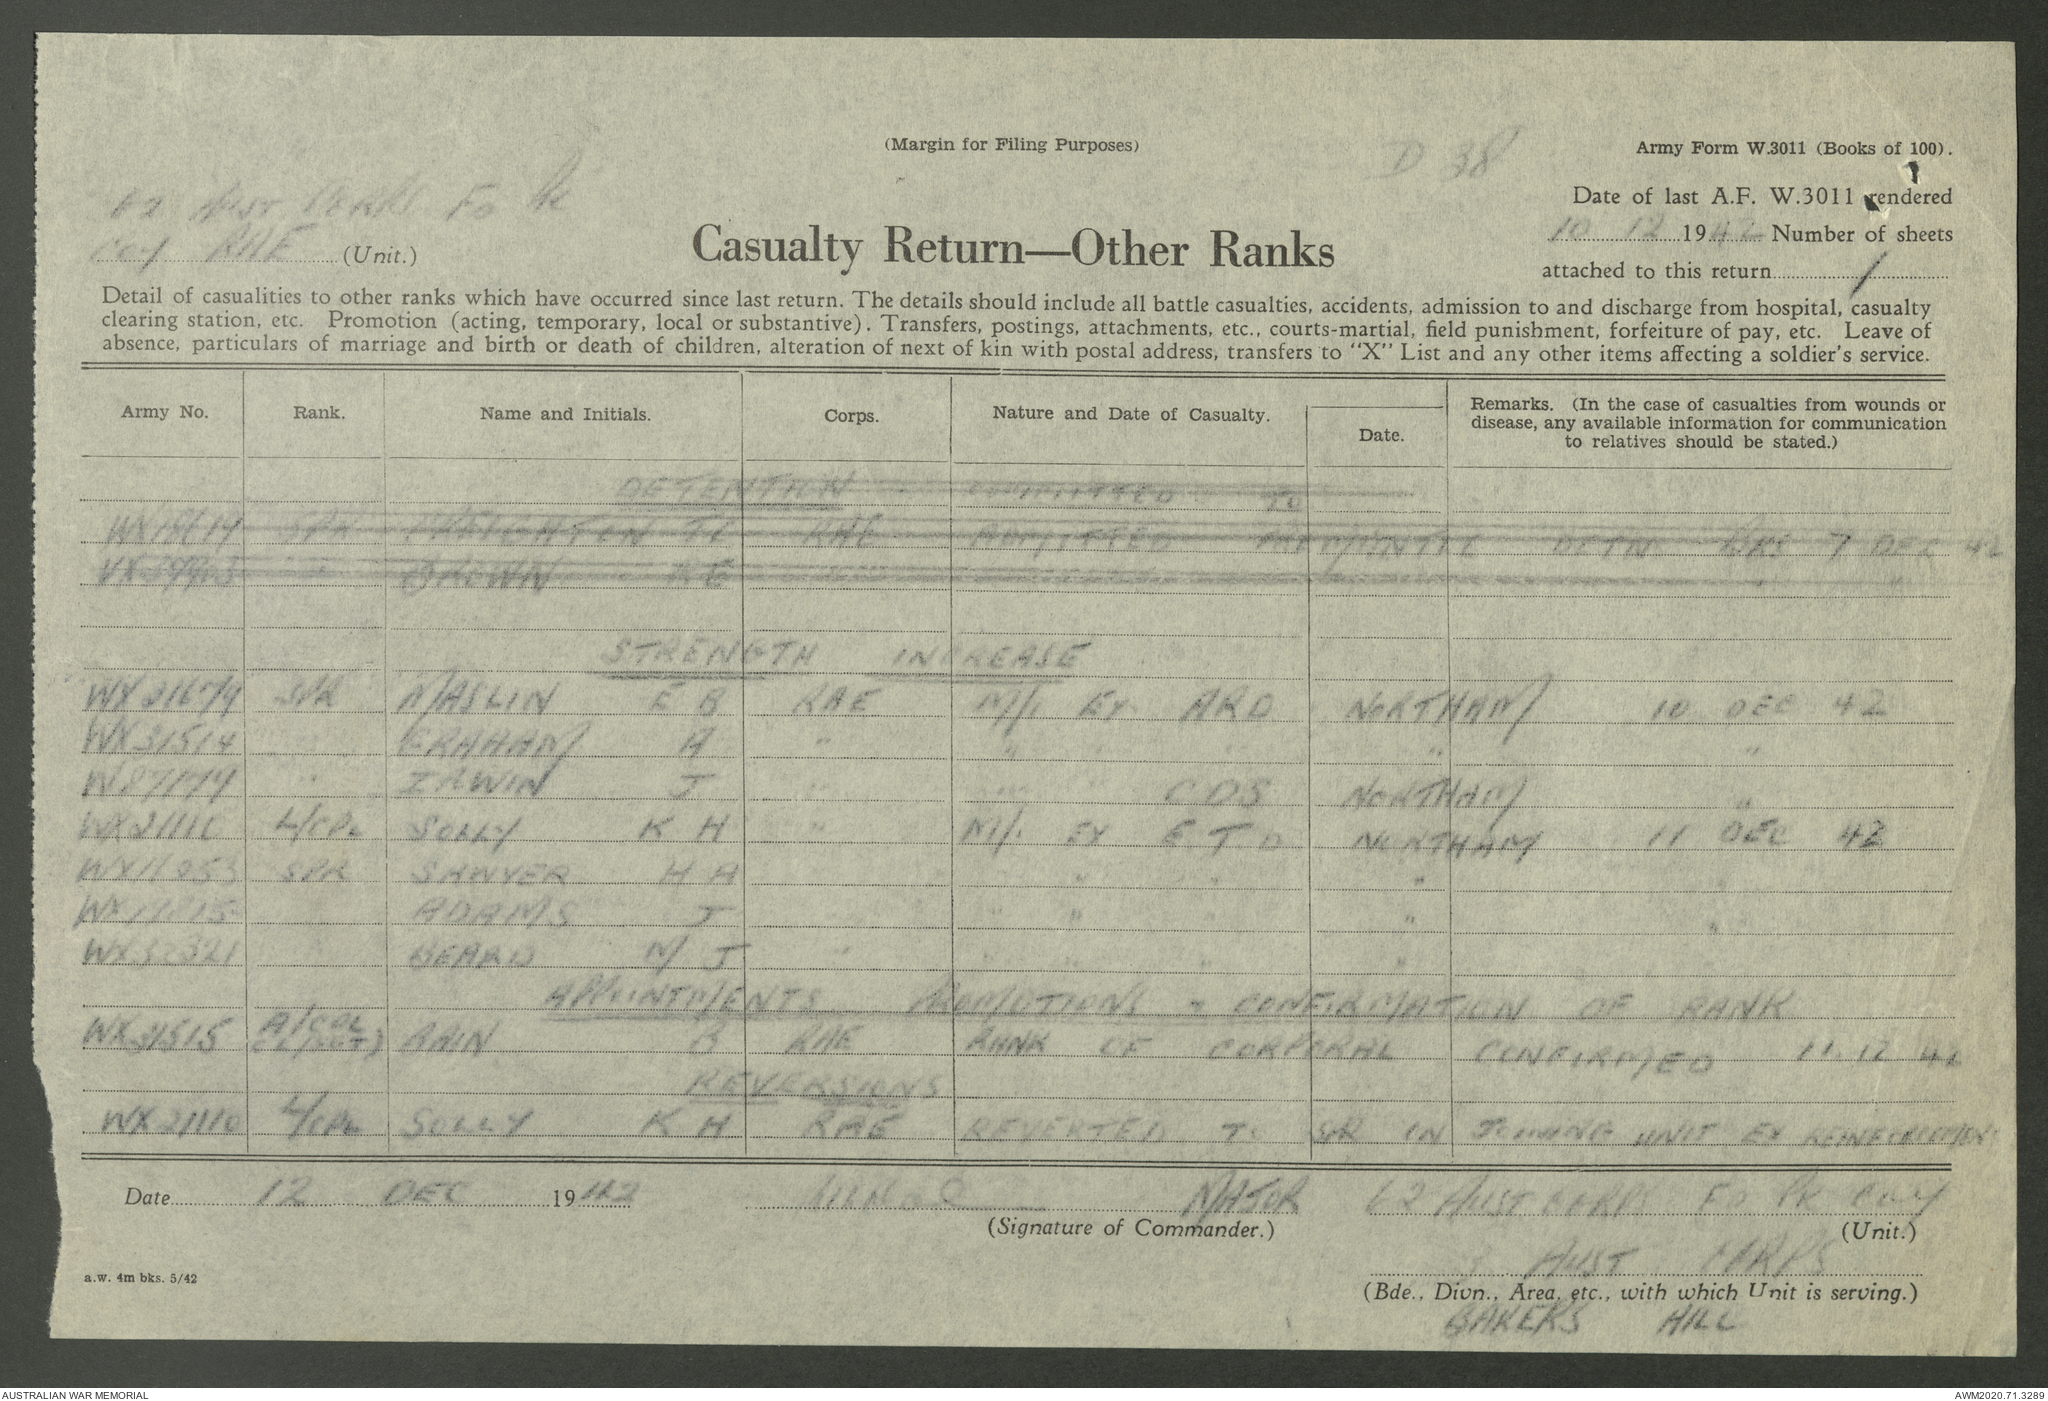 (Margin for Filing Purposes)
D 38
Army Form W.3011 (Books of 100).
62 Aust Corps Fd Pk
Coy RAE (Unit.)
Casualty Return—Other Ranks
Date of last A.F. W.3011 rendered
10 12 1942 Number of sheets
attached to this return 1
Detail of casualities to other ranks which have occurred since last return. The details should include all battle casualties, accidents, admission to and discharge from hospital, casualty
clearing station, etc. Promotion (acting, temporary, local or substantive). Transfers, postings, attachments, etc., courts-martial, field punishment, forfeiture of pay, etc. Leave of
absence, particulars of marriage and birth or death of children, alteration of next of kin with postal address, transfers to "X" List and any other items affecting a soldier's service.
Army No. Rank. Name and Initials. Corps. Nature and Date of Casualty. Date. Remarks. (In the case of casualties from wounds or
disease, any available information for communication
to relatives should be stated.)
DETENTION COMMITTED TO
SPR RAE ADMITTED DETN BKS 7 DEC 42
BROWN
STRENGTH INCREASE
SPR MASLIN E B RAE M/I EX ARD NORTHAM 10 DEC 42
WX31514 GRAHAM A " " " "
" IRWIN J " " CDS NORTHAM "
WX21110 L/CPL SOLLY K H " M/I EX E T D NORTHAM 11 DEC 42
SPR SAWYER H H " " " "
ADAMS J " " " "
WX32321 BEARD M J " " " " "
APPOINTMENTS PROMOTIONS - CONFIRMATION OF RANK
WX31515 A/CPL RAIN B RAE RANK OF CORPORAL CONFIRMED 11.12 42
REVERSIONS
WX21110 L/CPL SOLLY K H RAE REVERTED TO SPR IN JOINING UNIT EX REINFORCEMENT
Date 12 DEC 1942 MAJOR 62 AUST CORPS FD PK COY
(Signature of Commander.) (Unit.)
3 AUST CORPS
a.w. 4m bks. 5/42
(Bde., Divn., Area, etc., with which Unit is serving.)
BAKERS HILL
AUSTRALIAN WAR MEMORIAL AWM2020.71.3289